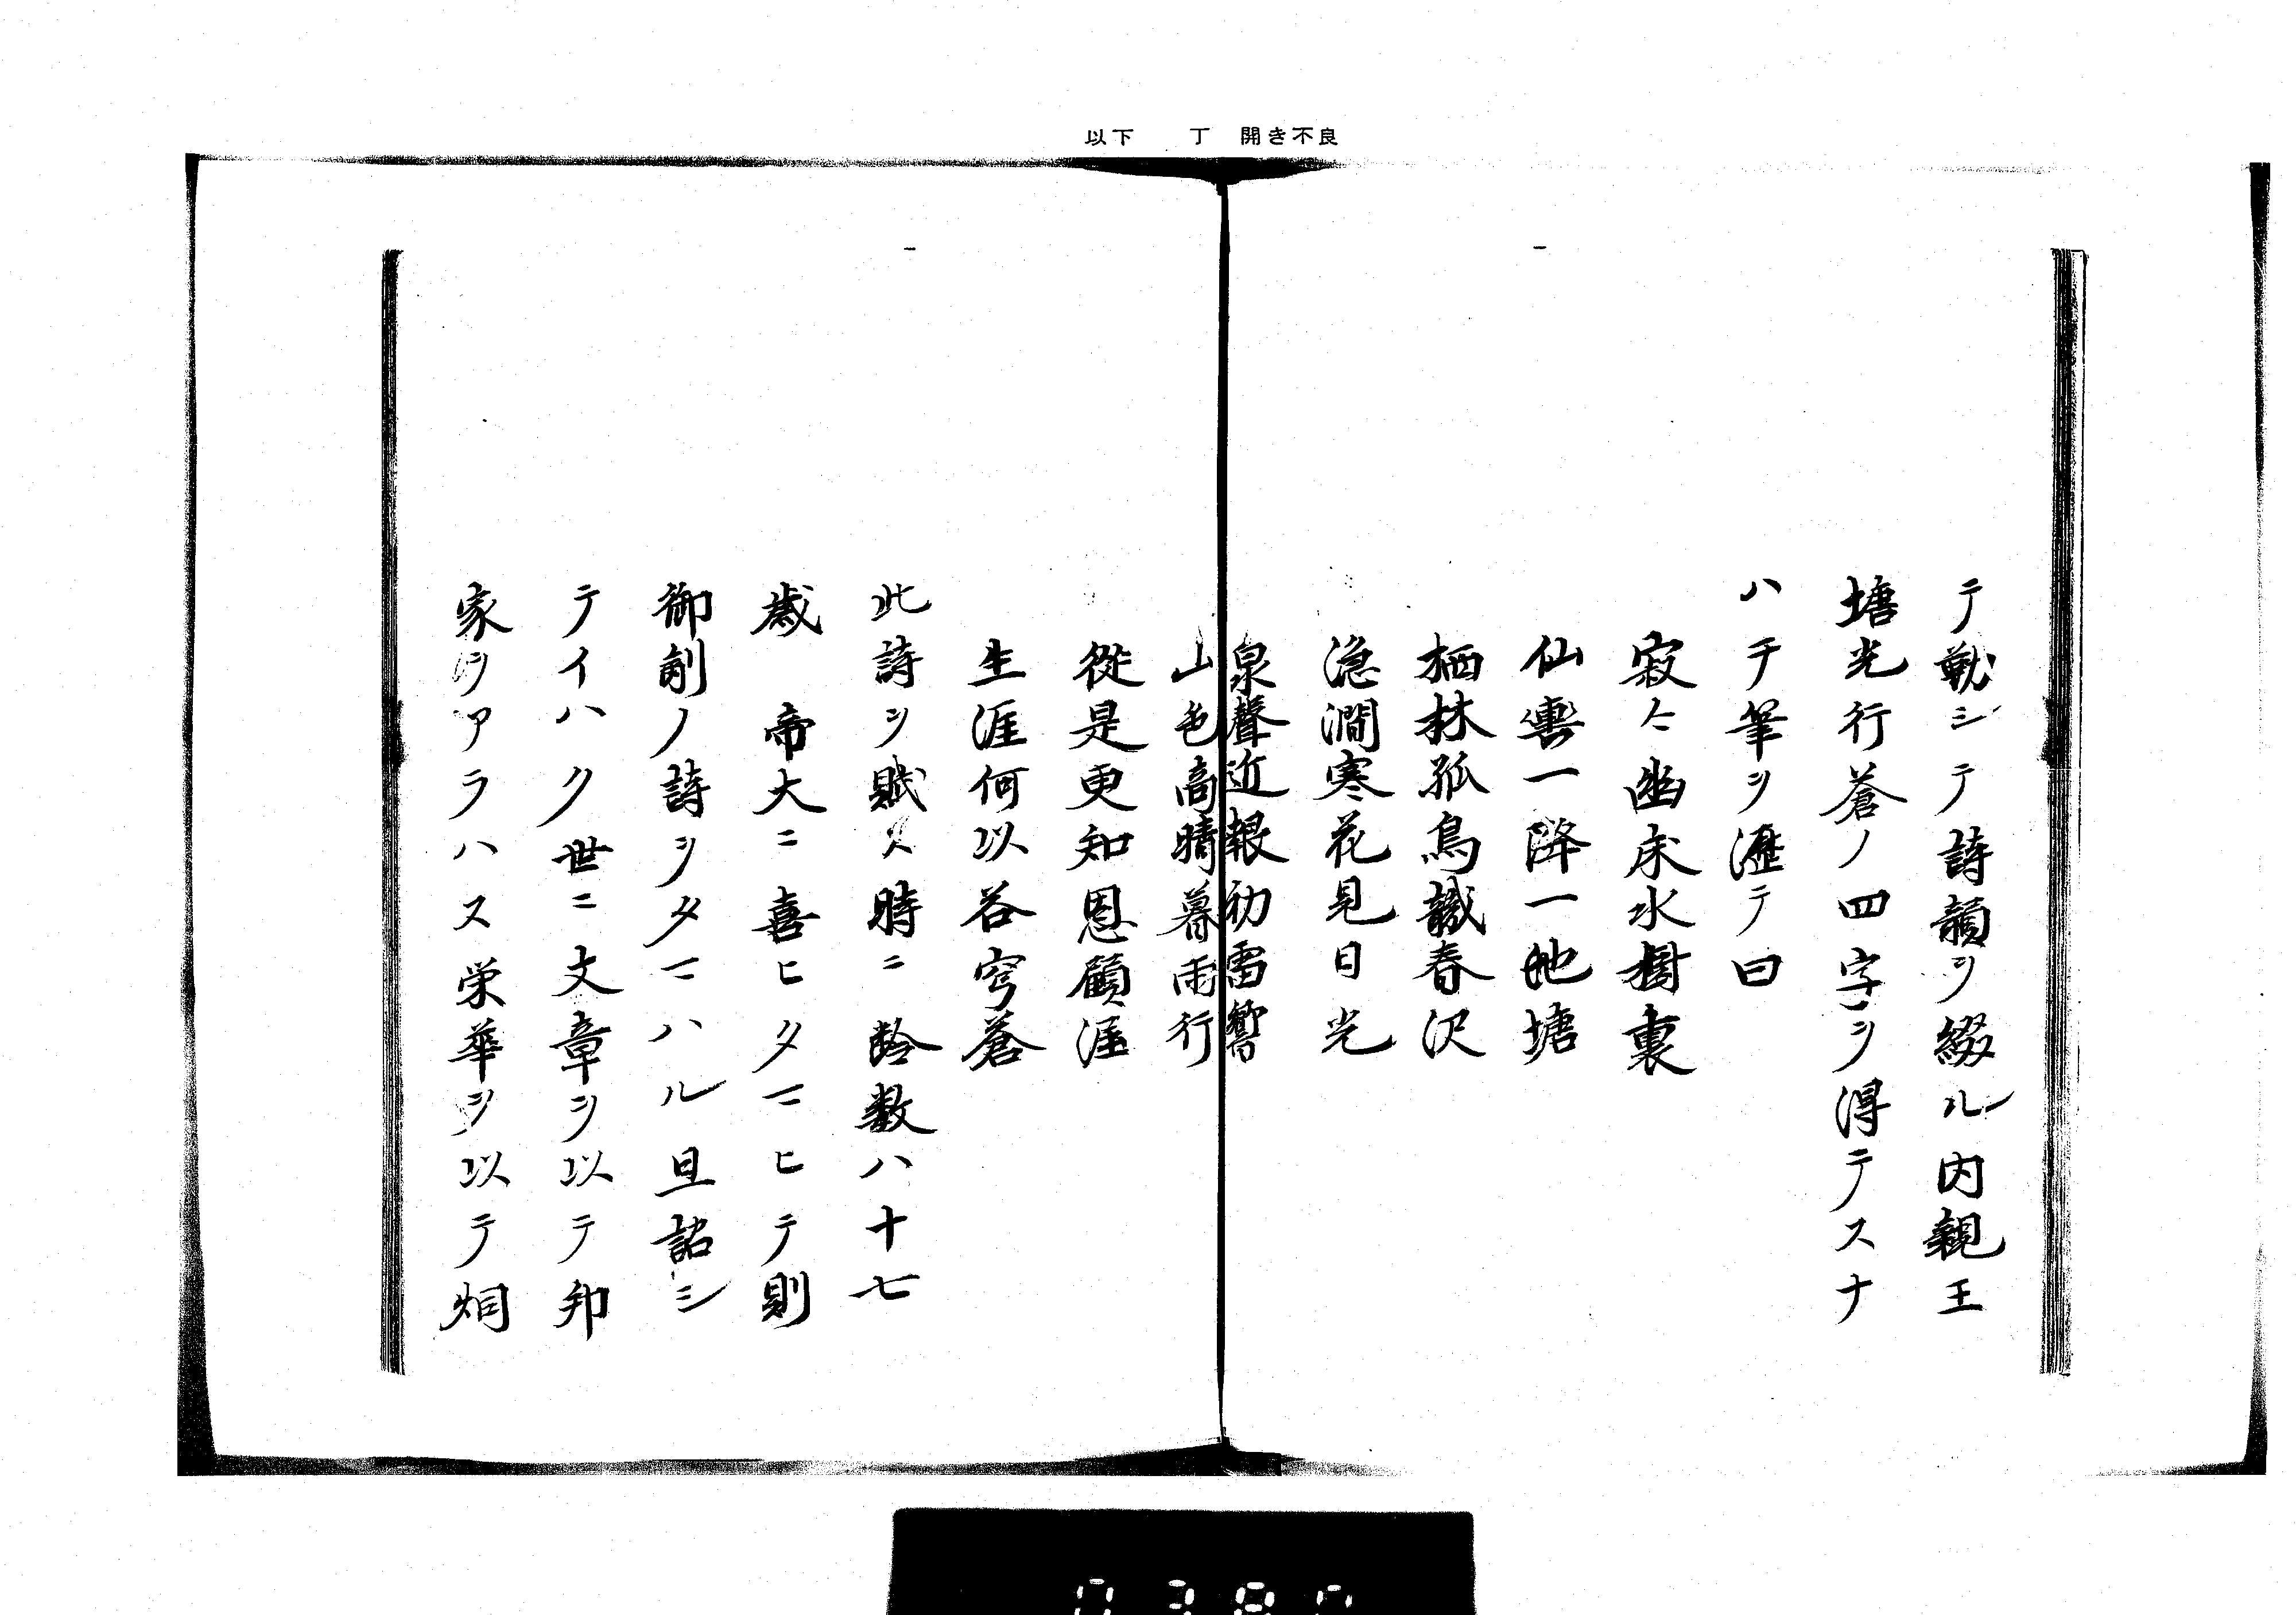 以下　　丁　開き不良
テ勒シテ詩韻ヲ綴ル内親王
塘光行蒼ノ四字ヲ得テスナ
ハチ筆ヲ瀝テ曰
寂〻幽床水樹裏
仙輿一降一地塘
栖林孤鳥識春沢
隠澗寒花見日光
泉聲近報初雷響
山色高晴暮雨行
從是更知恩顧渥
生涯何以答穹蒼
此詩ヲ賦ス時ニ齢数八十七
歳　帝大ニ喜ヒタマヒテ則
御制ノ詩ヲタマハル且詔シ
テイハク世ニ文章ヲ以テ邦
家ヲアラハス栄華ヲ以テ烟